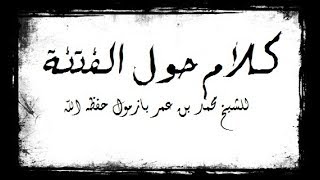 كلام حول الفتنة
للشيخ محمد بن عمر بازمول حفظه الله